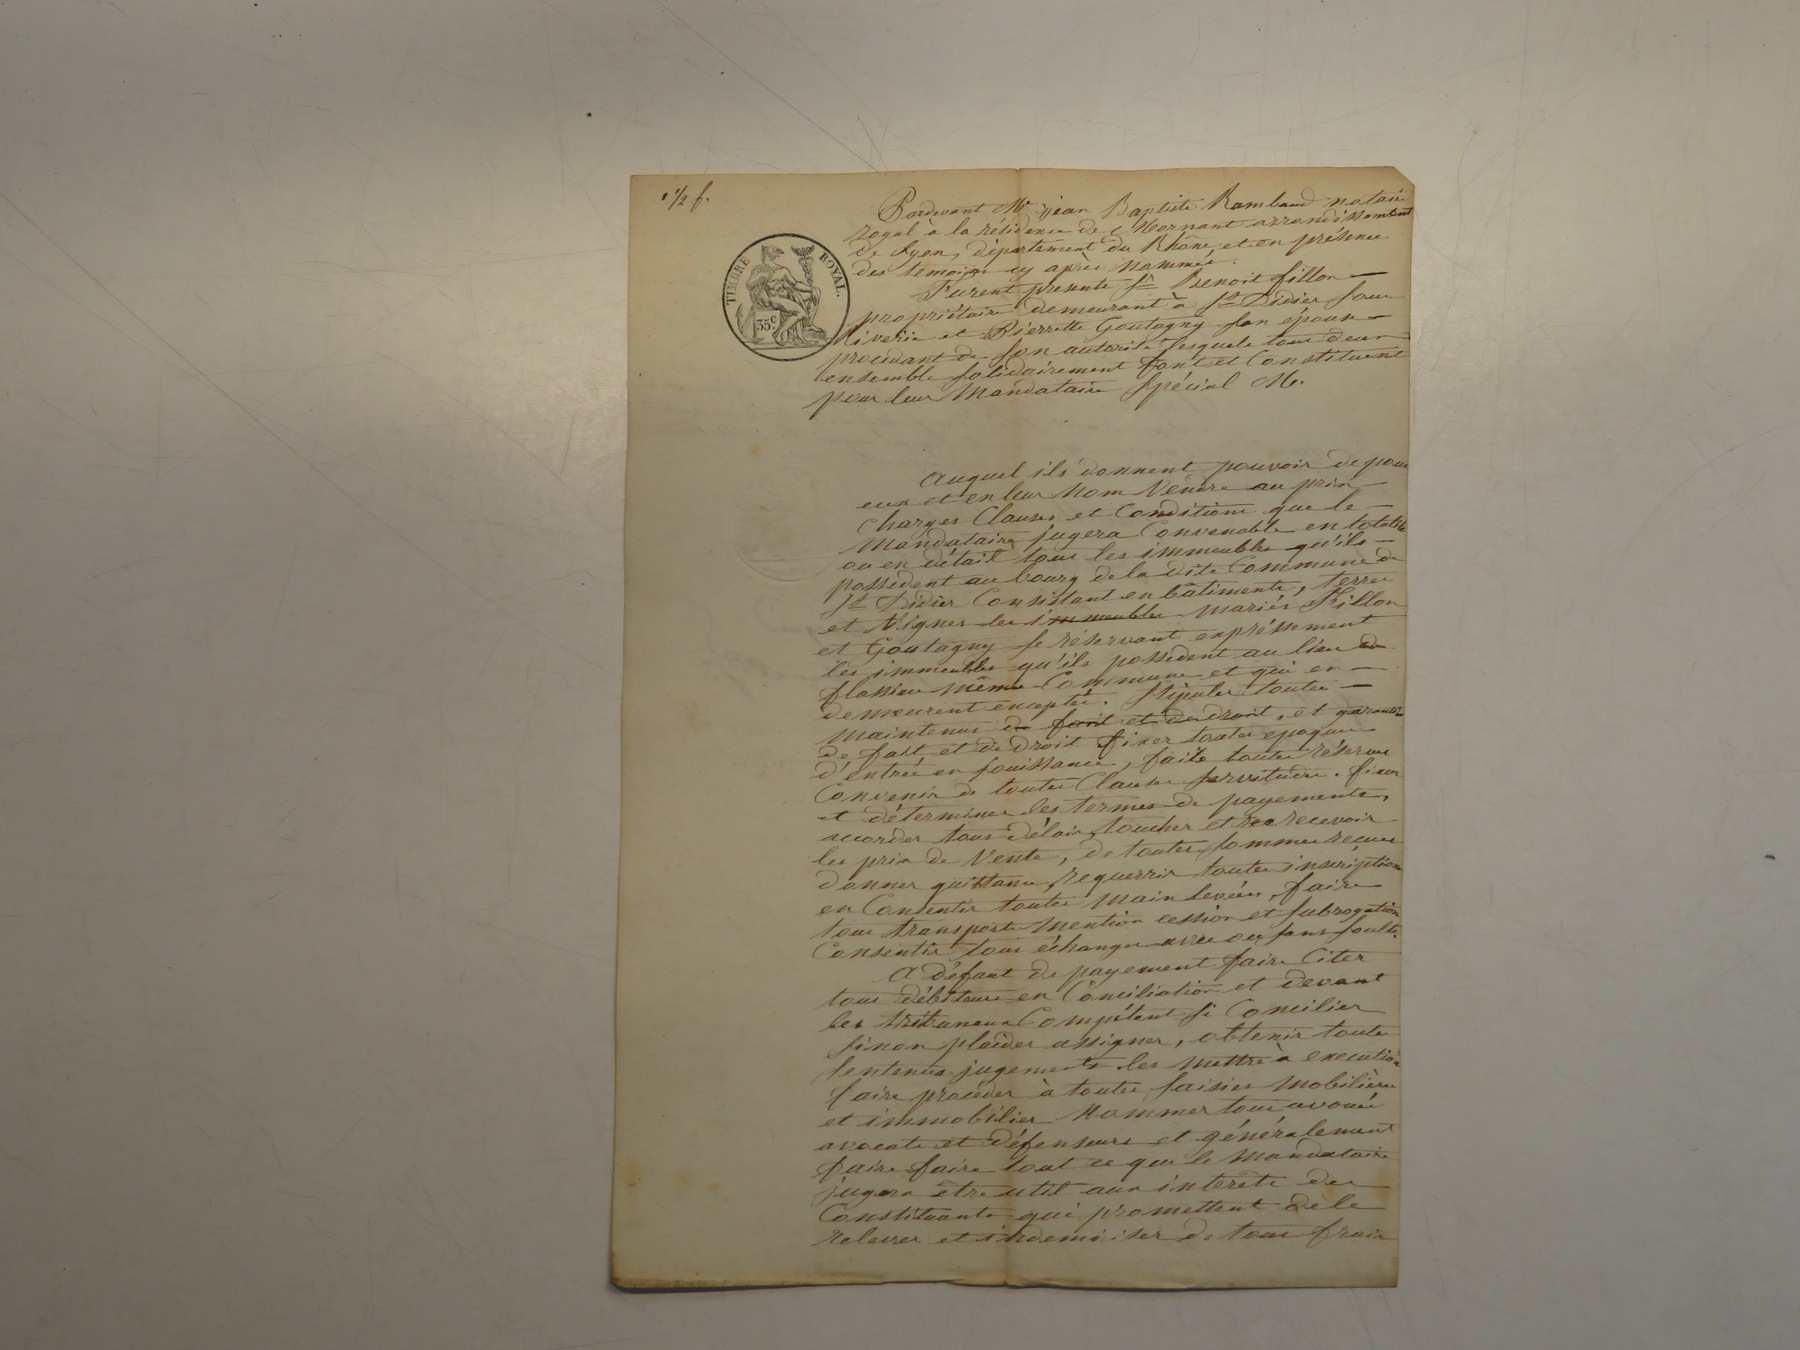 1 1/2 f.
TIMBRE ROYAL.
35 C
Pardevant Me jean Baptiste Rambaud notaire
royal à la résidence de Mornant arrondissement
de Lyon, département du Rhône, et en présence
des temoins cy après nommés.
Furent presents Sr Benoit fillon
propriétaire demeurant à St Didier sous
Riverie et Pierrette Goutagny son épouse
procédant de son autorité lesquels tous deux
ensemble solidairement font et Constituent
pour leur Mandataire Spécial M.
Auquel ils donnent pouvoir de pour
eux et en leur Nom Vendre au prix
Charges Clauses et Conditions que le
Mandataire jugera Convenable en totalité
ou en détail tous les immeubles qu'ils
possedent au bourg de la dite Commune de
St Didier Consistant en bâtiments, terres
et Vignes les immeubles mariés Fillon
et Goutagny se réservant expréssement
les immeubles qu'ils possedent au lieu de
flassieu même Commune et qui en
demeurent exceptés. Stipuler toutes
maintenus de fait et de droit, et garantie
de fait et de droit fixer toutes epoques
d'entrée en jouissance, faite toutes réserves
Convenir de toutes Clauses servitudes. fixer
et déterminer les termes de payements,
accorder tous délais, toucher et recevoir
les prix de Vente, de toutes sommes recues
donner quittance, requerrir toutes inscriptions
en Consentir toutes main levées, faire
tous transports Mention cession et subrogation
Consentir tous échanges avec ou sans soulte.
A défaut de payement faire Citer
tous débiteurs en Conciliation et devant
les tribunaux Compétent se Concilier
sinon plaider assigner, obtenir toute
sentences jugements les mettre à execution
faire procéder à toutes saisies mobilières
et immobilier Nommer tous avoués
avocats et défenseurs et généralement
faire faire tout ce que le Mandataire
jugera être util aux intérêts des
Constituants qui promettent de le
relever et indemniser de tous frais